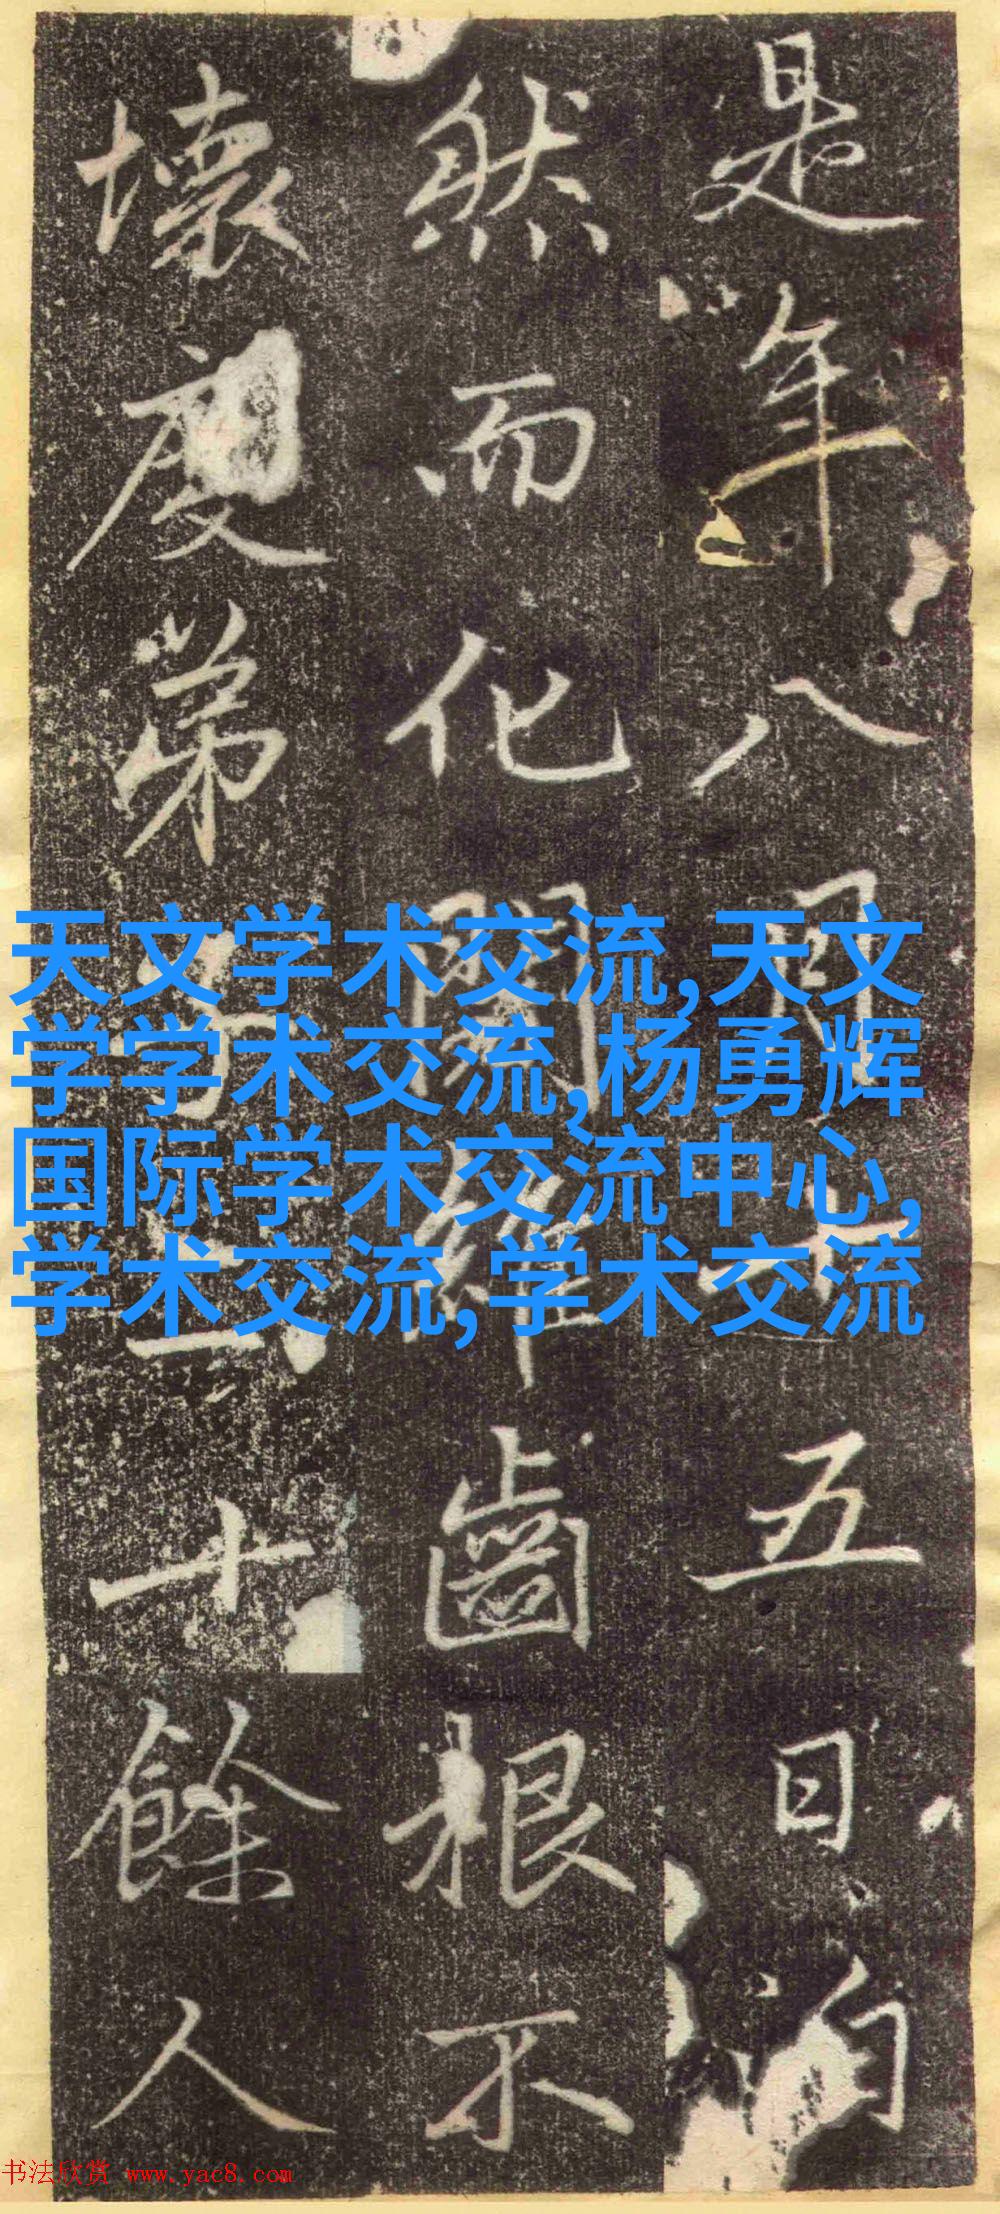 是年八月十五日
然而化闍維齒根不
壞度弟子三十餘人
天文学术交流,天文
学学术交流,杨勇辉
国际学术交流中心,
学术交流,学术交流
书法欣赏 www.yac8.com